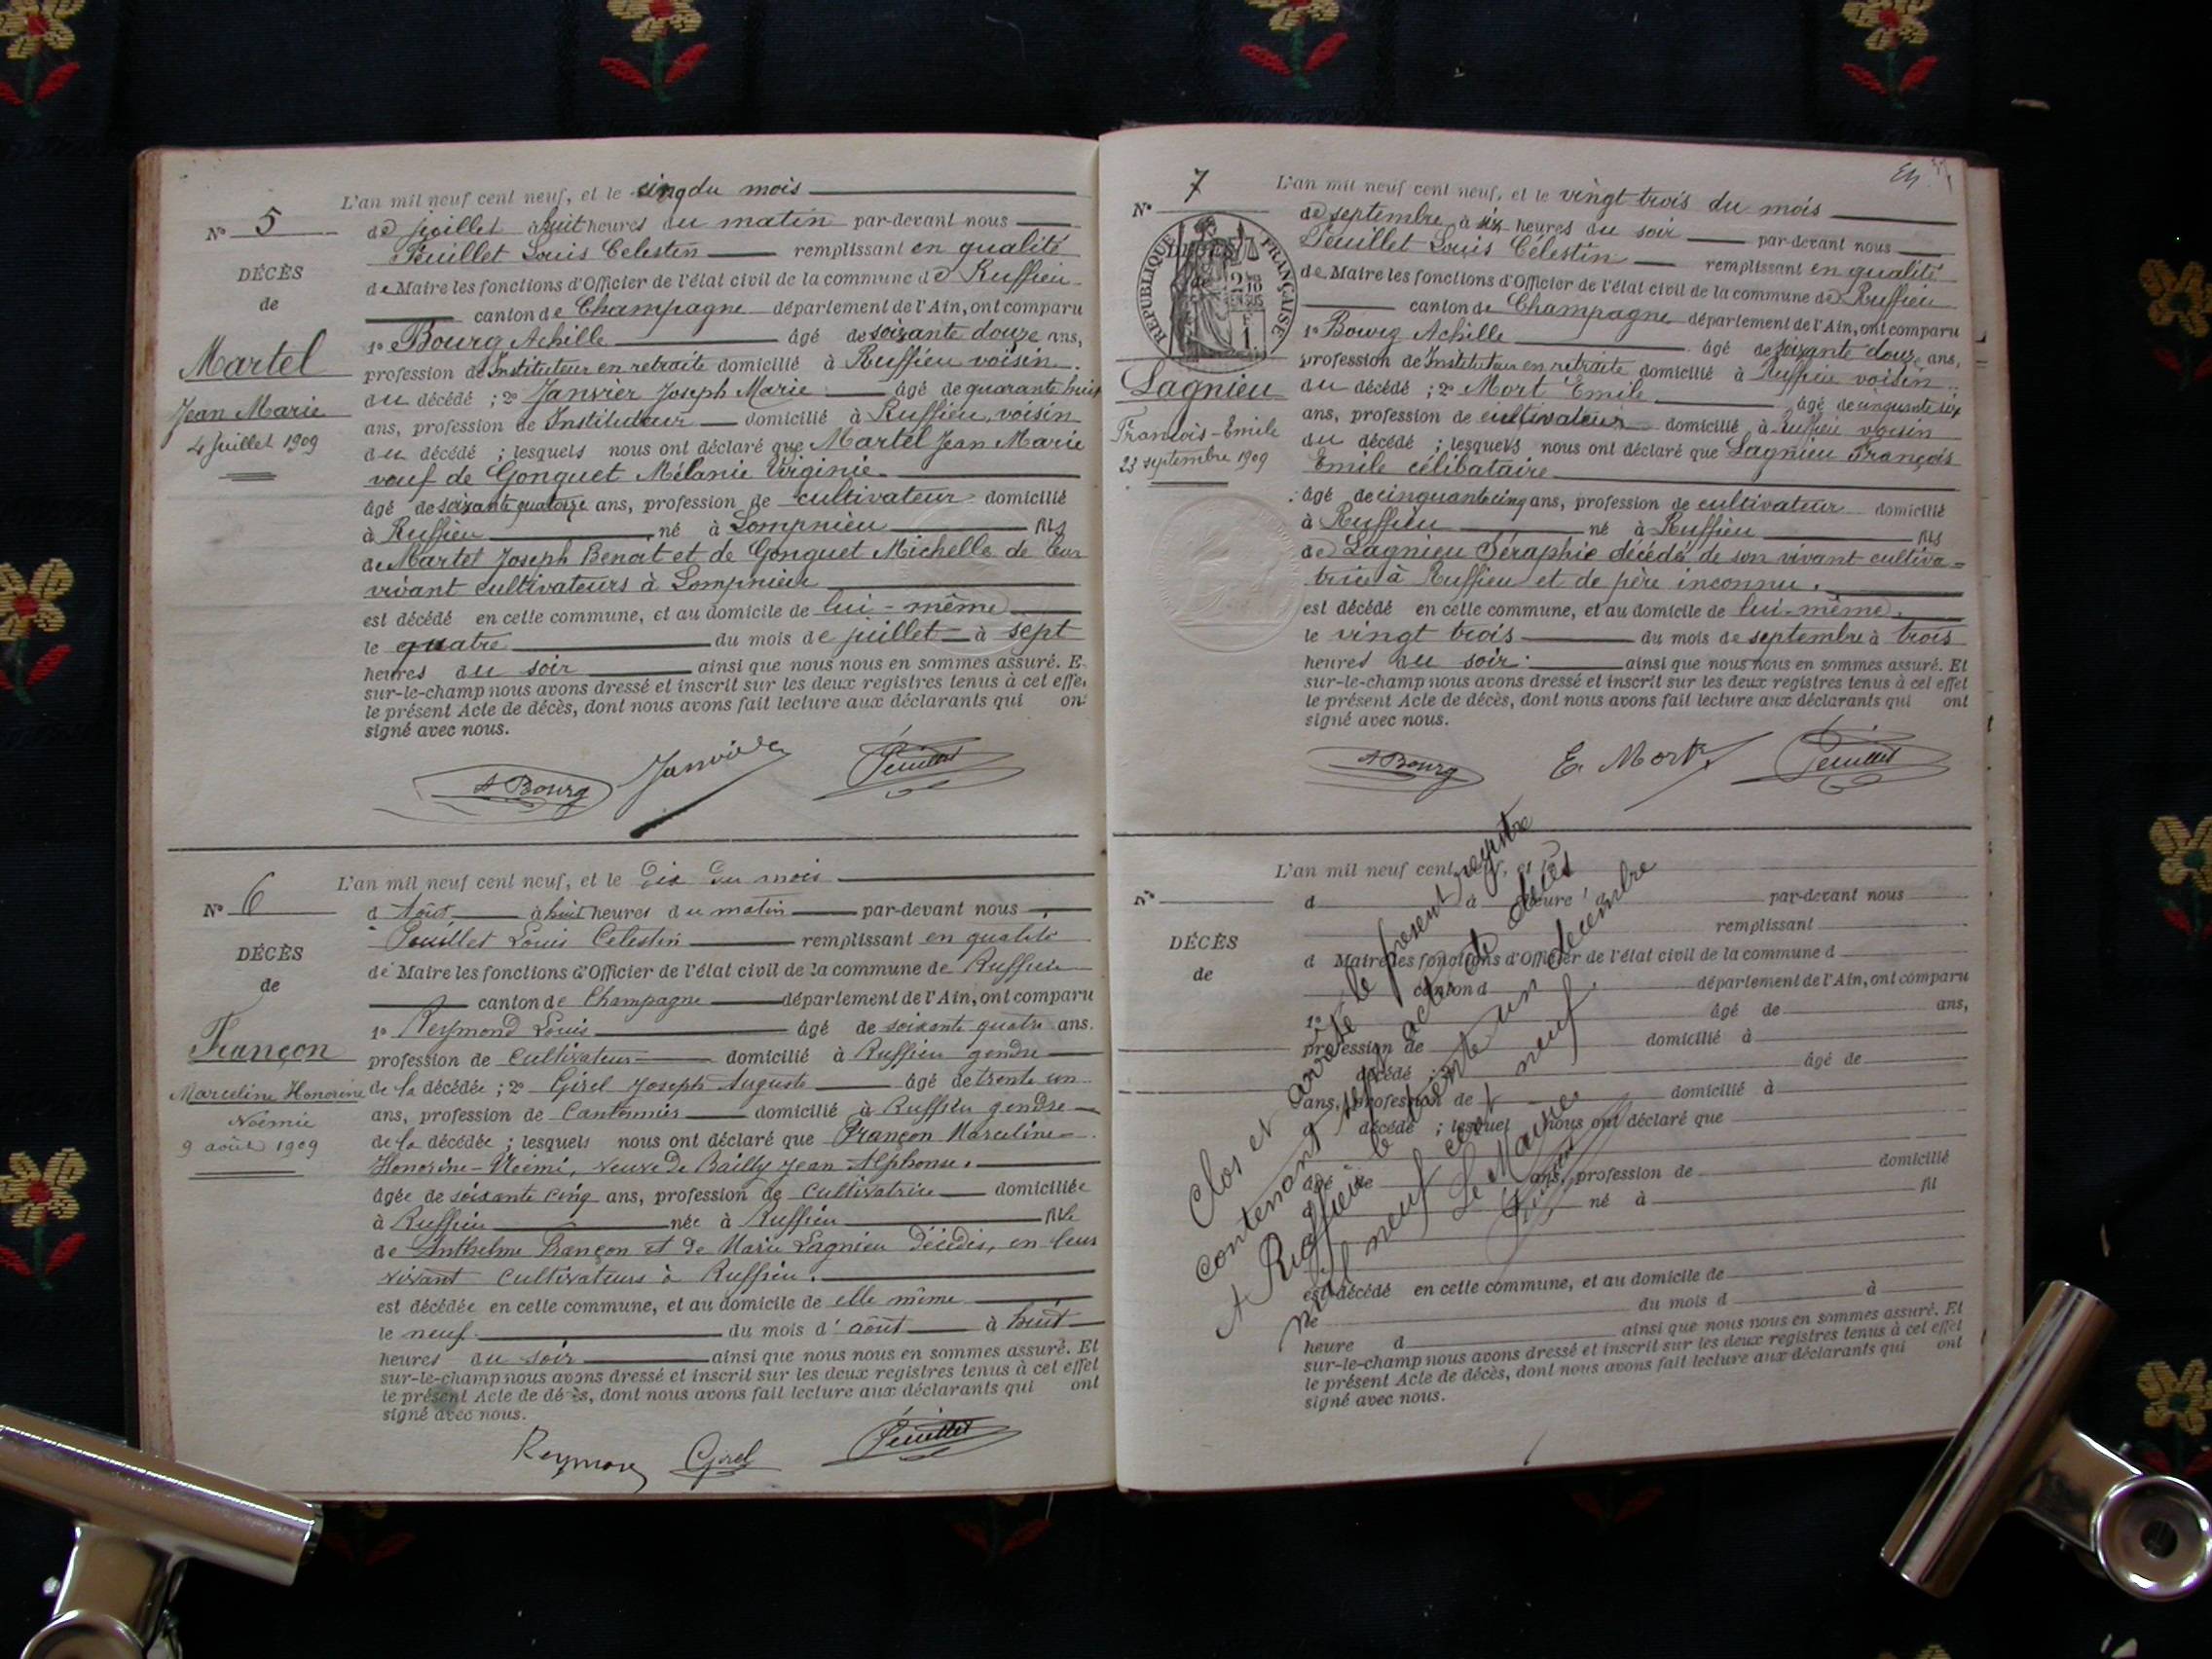 L'an mil neuf cent neuf, et le cinq du mois
N° 5
de juillet à huit heures du matin par-devant nous
Peuillet Louis Célestin remplissant en qualité
DÉCÈS
de Maire les fonctions d'Officier de l'état civil de la commune de Ruffieu
de
canton de Champagne département de l'Ain, ont comparu
1° Bourg Achille âgé de soixante douze ans,
Martel
profession de Instituteur en retraite domicilié à Ruffieu voisin
du décédé ; 2° Janvier Joseph Marie âgé de quarante huit
Jean Marie
ans, profession de Instituteur domicilié à Ruffieu, voisin
4 Juillet 1909
du décédé ; lesquels nous ont déclaré que Martel Jean Marie
veuf de Gonguet Mélanie Virginie
âgé de soixante quatorze ans, profession de cultivateur domicilié
à Ruffieu né à Lompnieu fils
de Martel Joseph Benoit et de Gonguet Michelle de leur
vivant cultivateurs à Lompnieu
est décédé en cette commune, et au domicile de lui-même
le quatre du mois de juillet à sept
heures du soir ainsi que nous nous en sommes assuré. E
sur-le-champ nous avons dressé et inscrit sur les deux registres tenus à cet effe
le présent Acte de décès, dont nous avons fait lecture aux déclarants qui on
signé avec nous.
A Bourg Janvier Peuillet
L'an mil neuf cent neuf, et le dix du mois
N° 6
d'Août à huit heures du matin par-devant nous
Peuillet Louis Celestin remplissant en qualité
DÉCÈS
de Maire les fonctions d'Officier de l'état civil de la commune de Ruffieu
de
canton de Champagne département de l'Ain, ont comparu
1° Reymond Louis âgé de soixante quatre ans.
Françon
profession de Cultivateur domicilié à Ruffieu gendre
Marceline Honorine
de la décédée ; 2° Girel Joseph Auguste âgé de trente un
Noémie
ans, profession de Cantonnier domicilié à Ruffieu gendre
9 août 1909
de la décédée ; lesquels nous ont déclaré que Françon Marceline
Honorine-Noémi, veuve de Bailly Jean Alphonse.
âgée de soixante cinq ans, profession de Cultivatrice domiciliée
à Ruffieu née à Ruffieu fille
de Anthelme Françon et de Marie Lagnieu décédés, en leur
vivant Cultivateurs à Ruffieu.
est décédée en cette commune, et au domicile de elle même
le neuf du mois d'août à huit
heures du soir ainsi que nous nous en sommes assuré. Et
sur-le-champ nous avons dressé et inscrit sur les deux registres tenus à cet effet
le présent Acte de décès, dont nous avons fait lecture aux déclarants qui ont
signé avec nous.
Reymond Girel Peuillet
L'an mil neuf cent neuf, et le vingt trois du mois
N° 7
de septembre à six heures du soir par-devant nous
Peuillet Louis Célestin remplissant en qualité
RÉPUBLIQUE FRANÇAISE
DÉCÈS
de Maire les fonctions d'Officier de l'état civil de la commune de Ruffieu
canton de Champagne département de l'Ain, ont comparu
1° Bourg Achille âgé de soixante douze ans,
profession de Instituteur en retraite domicilié à Ruffieu voisin
Lagnieu
du décédé ; 2° Mort Emile âgé de cinquante six
François-Emile
ans, profession de cultivateur domicilié à Ruffieu voisin
23 septembre 1909
du décédé ; lesquels nous ont déclaré que Lagnieu François
Emile célibataire
âgé de cinquante cinq ans, profession de cultivateur domicilié
à Ruffieu né à Ruffieu fils
de Lagnieu Séraphie décédé de son vivant cultiva=
trice à Ruffieu et de père inconnu.
est décédé en cette commune, et au domicile de lui-même.
le vingt trois du mois de septembre à trois
heures du soir. ainsi que nous nous en sommes assuré. Et
sur-le-champ nous avons dressé et inscrit sur les deux registres tenus à cet effet
le présent Acte de décès, dont nous avons fait lecture aux déclarants qui ont
signé avec nous.
A Bourg E. Mort Peuillet
L'an mil neuf cent neuf, et le
N°
d à heure d par-devant nous
remplissant
DÉCÈS
d Maire les fonctions d'Officier de l'état civil de la commune d
de
canton d département de l'Ain, ont comparu
1° âgé de ans,
profession de domicilié à
décédé ; 2° âgé de
ans, profession de domicilié à
décédé ; lesquel nous ont déclaré que
âgé de ans, profession de domicilié
à né à fil
est décédé en cette commune, et au domicile de
le du mois d à
heure d ainsi que nous nous en sommes assuré. Et
sur-le-champ nous avons dressé et inscrit sur les deux registres tenus à cet effet
le présent Acte de décès, dont nous avons fait lecture aux déclarants qui ont
signé avec nous.
Clos et arrêté le présent registre
contenant sept actes de décès
A Ruffieu le trente un décembre
mil neuf cent neuf
Le Maire
Peuillet